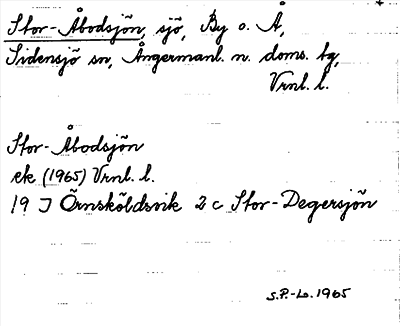 Stor-Åbodsjön, sjö, By o. Å,
Sidensjö sn, Ångermanl. n. doms. tg,
Vrnl. l.
Stor-Åbodsjön
ek (1965) Vrnl. l.
19 J Örnsköldsvik 2 c Stor-Degersjön
S.P.-Lo. 1965